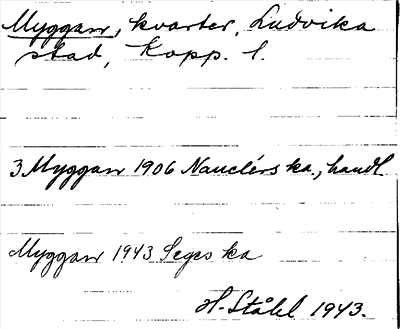 Myggan, kvarter, Ludvika
stad, Kopp. l.
3 Myggan 1906 Nauclérs ka., handl.
Myggan 1943 Seges ka
H. Ståhl 1943.